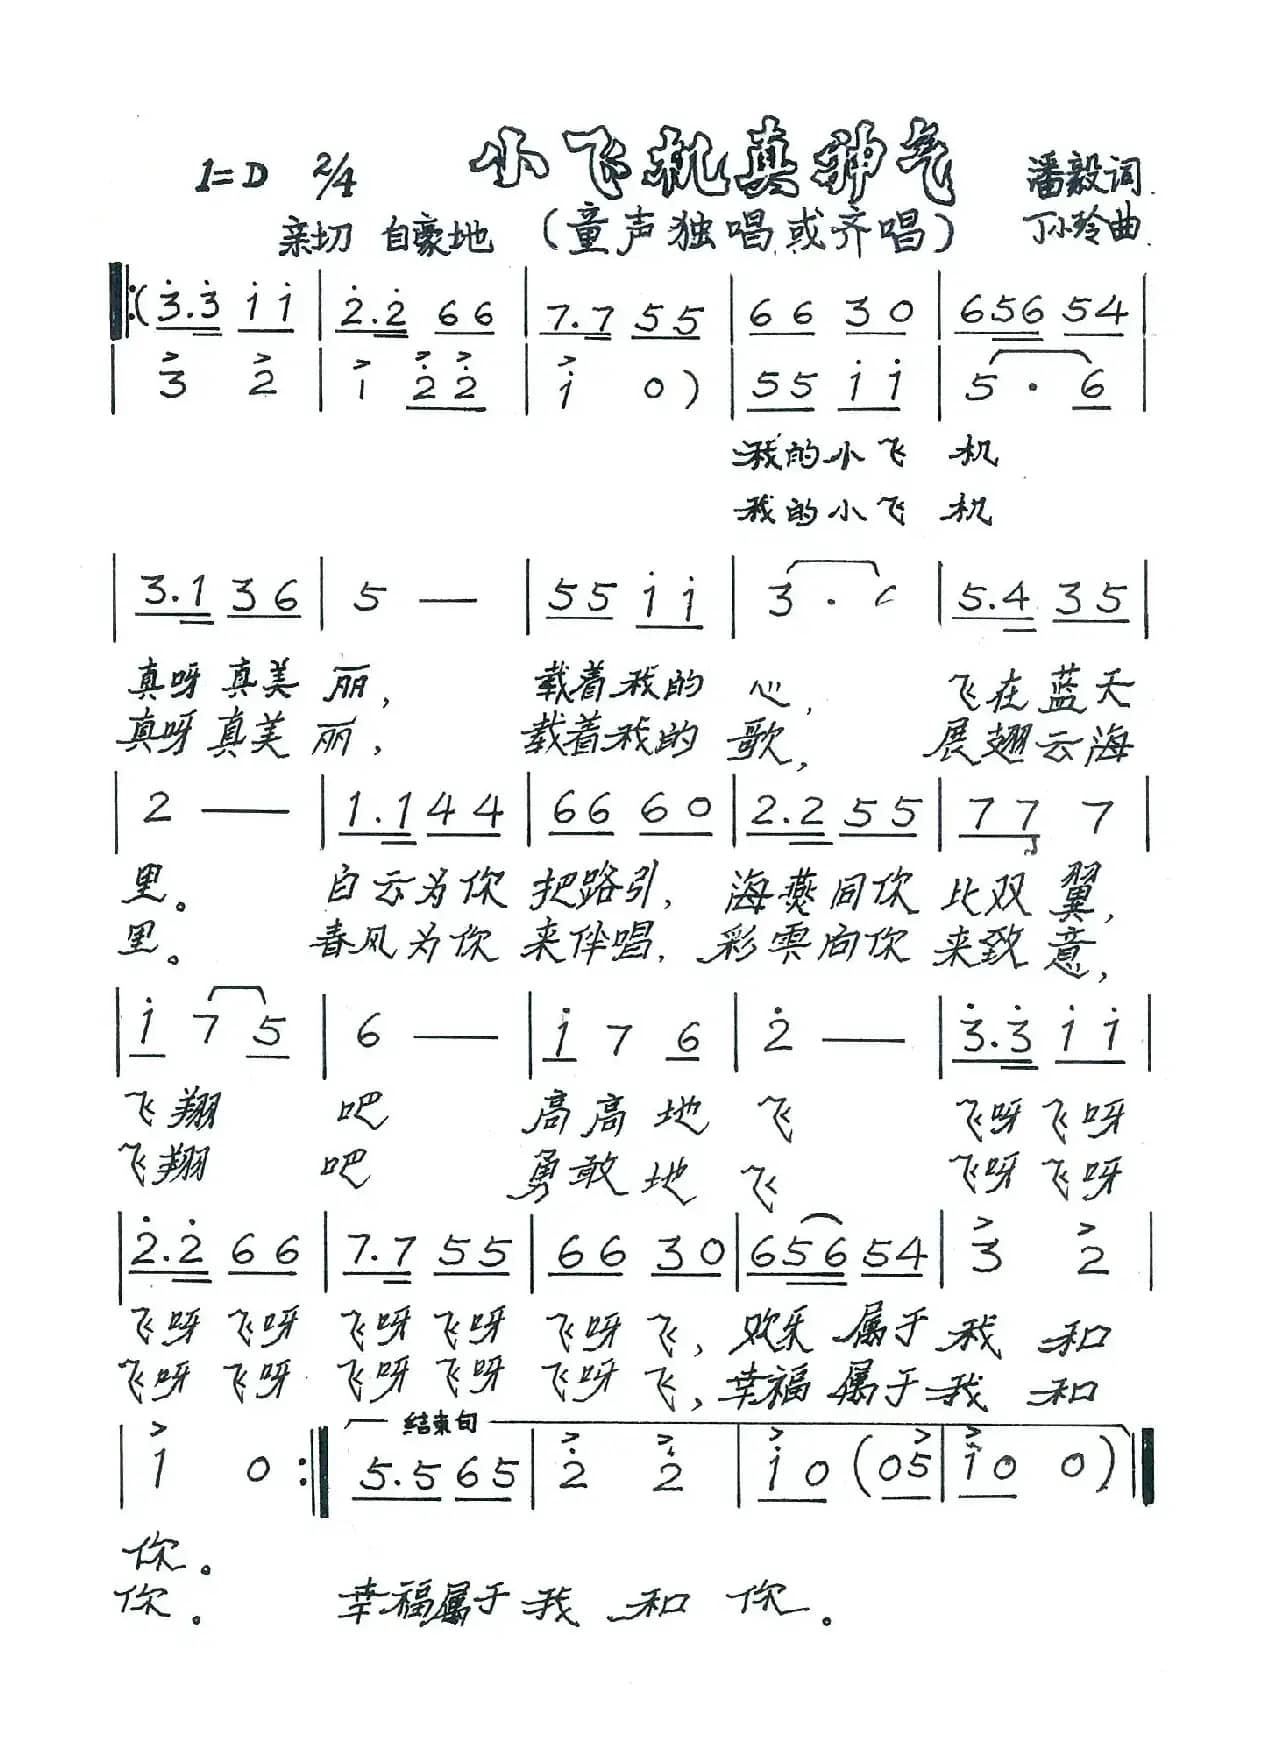 小飞机真神气
1=D 2/4 潘毅词
亲切 自豪地 (童声独唱或齐唱) 丁小玲曲
‖:(3̇.3̇ 1̇1̇ | 2̇.2̇ 66 | 7.7 55 | 66 30 | 656 54 |
| 3 2 | 1 2̇2̇ | 1̇ 0) | 55 1̇1̇ | 5·6 |
我的小飞 机
我的小飞 机
| 3.1 36 | 5 — | 55 1̇1̇ | 3· | 5.4 35 |
真呀真美 丽, 载着我的 心, 飞在蓝天
真呀真美 丽, 载着我的 歌, 展翅云海
| 2 — | 1.1 44 | 66 60 | 2.2 55 | 77 7 |
里。 白云为你 把路引, 海燕同你 比双翼,
里。 春风为你 来伴唱, 彩雲向你 来致意,
| 1̇ 7 5 | 6 — | 1̇ 7 6 | 2̇ — | 3̇.3̇ 1̇1̇ |
飞翔 吧 高高地 飞 飞呀飞呀
飞翔 吧 勇敢地 飞 飞呀飞呀
| 2̇.2̇ 66 | 7.7 55 | 66 30 | 656 54 | 3 2 |
飞呀飞呀 飞呀飞呀 飞呀飞, 欢乐属于 我 和
飞呀飞呀 飞呀飞呀 飞呀飞, 幸福属于 我 和
结束句
| 1 0 :‖ 5.5 65 | 2̇ 2̇ | 1̇0 (05 | 1̇0 0) ‖
你。
你。 幸福属于 我 和 你。